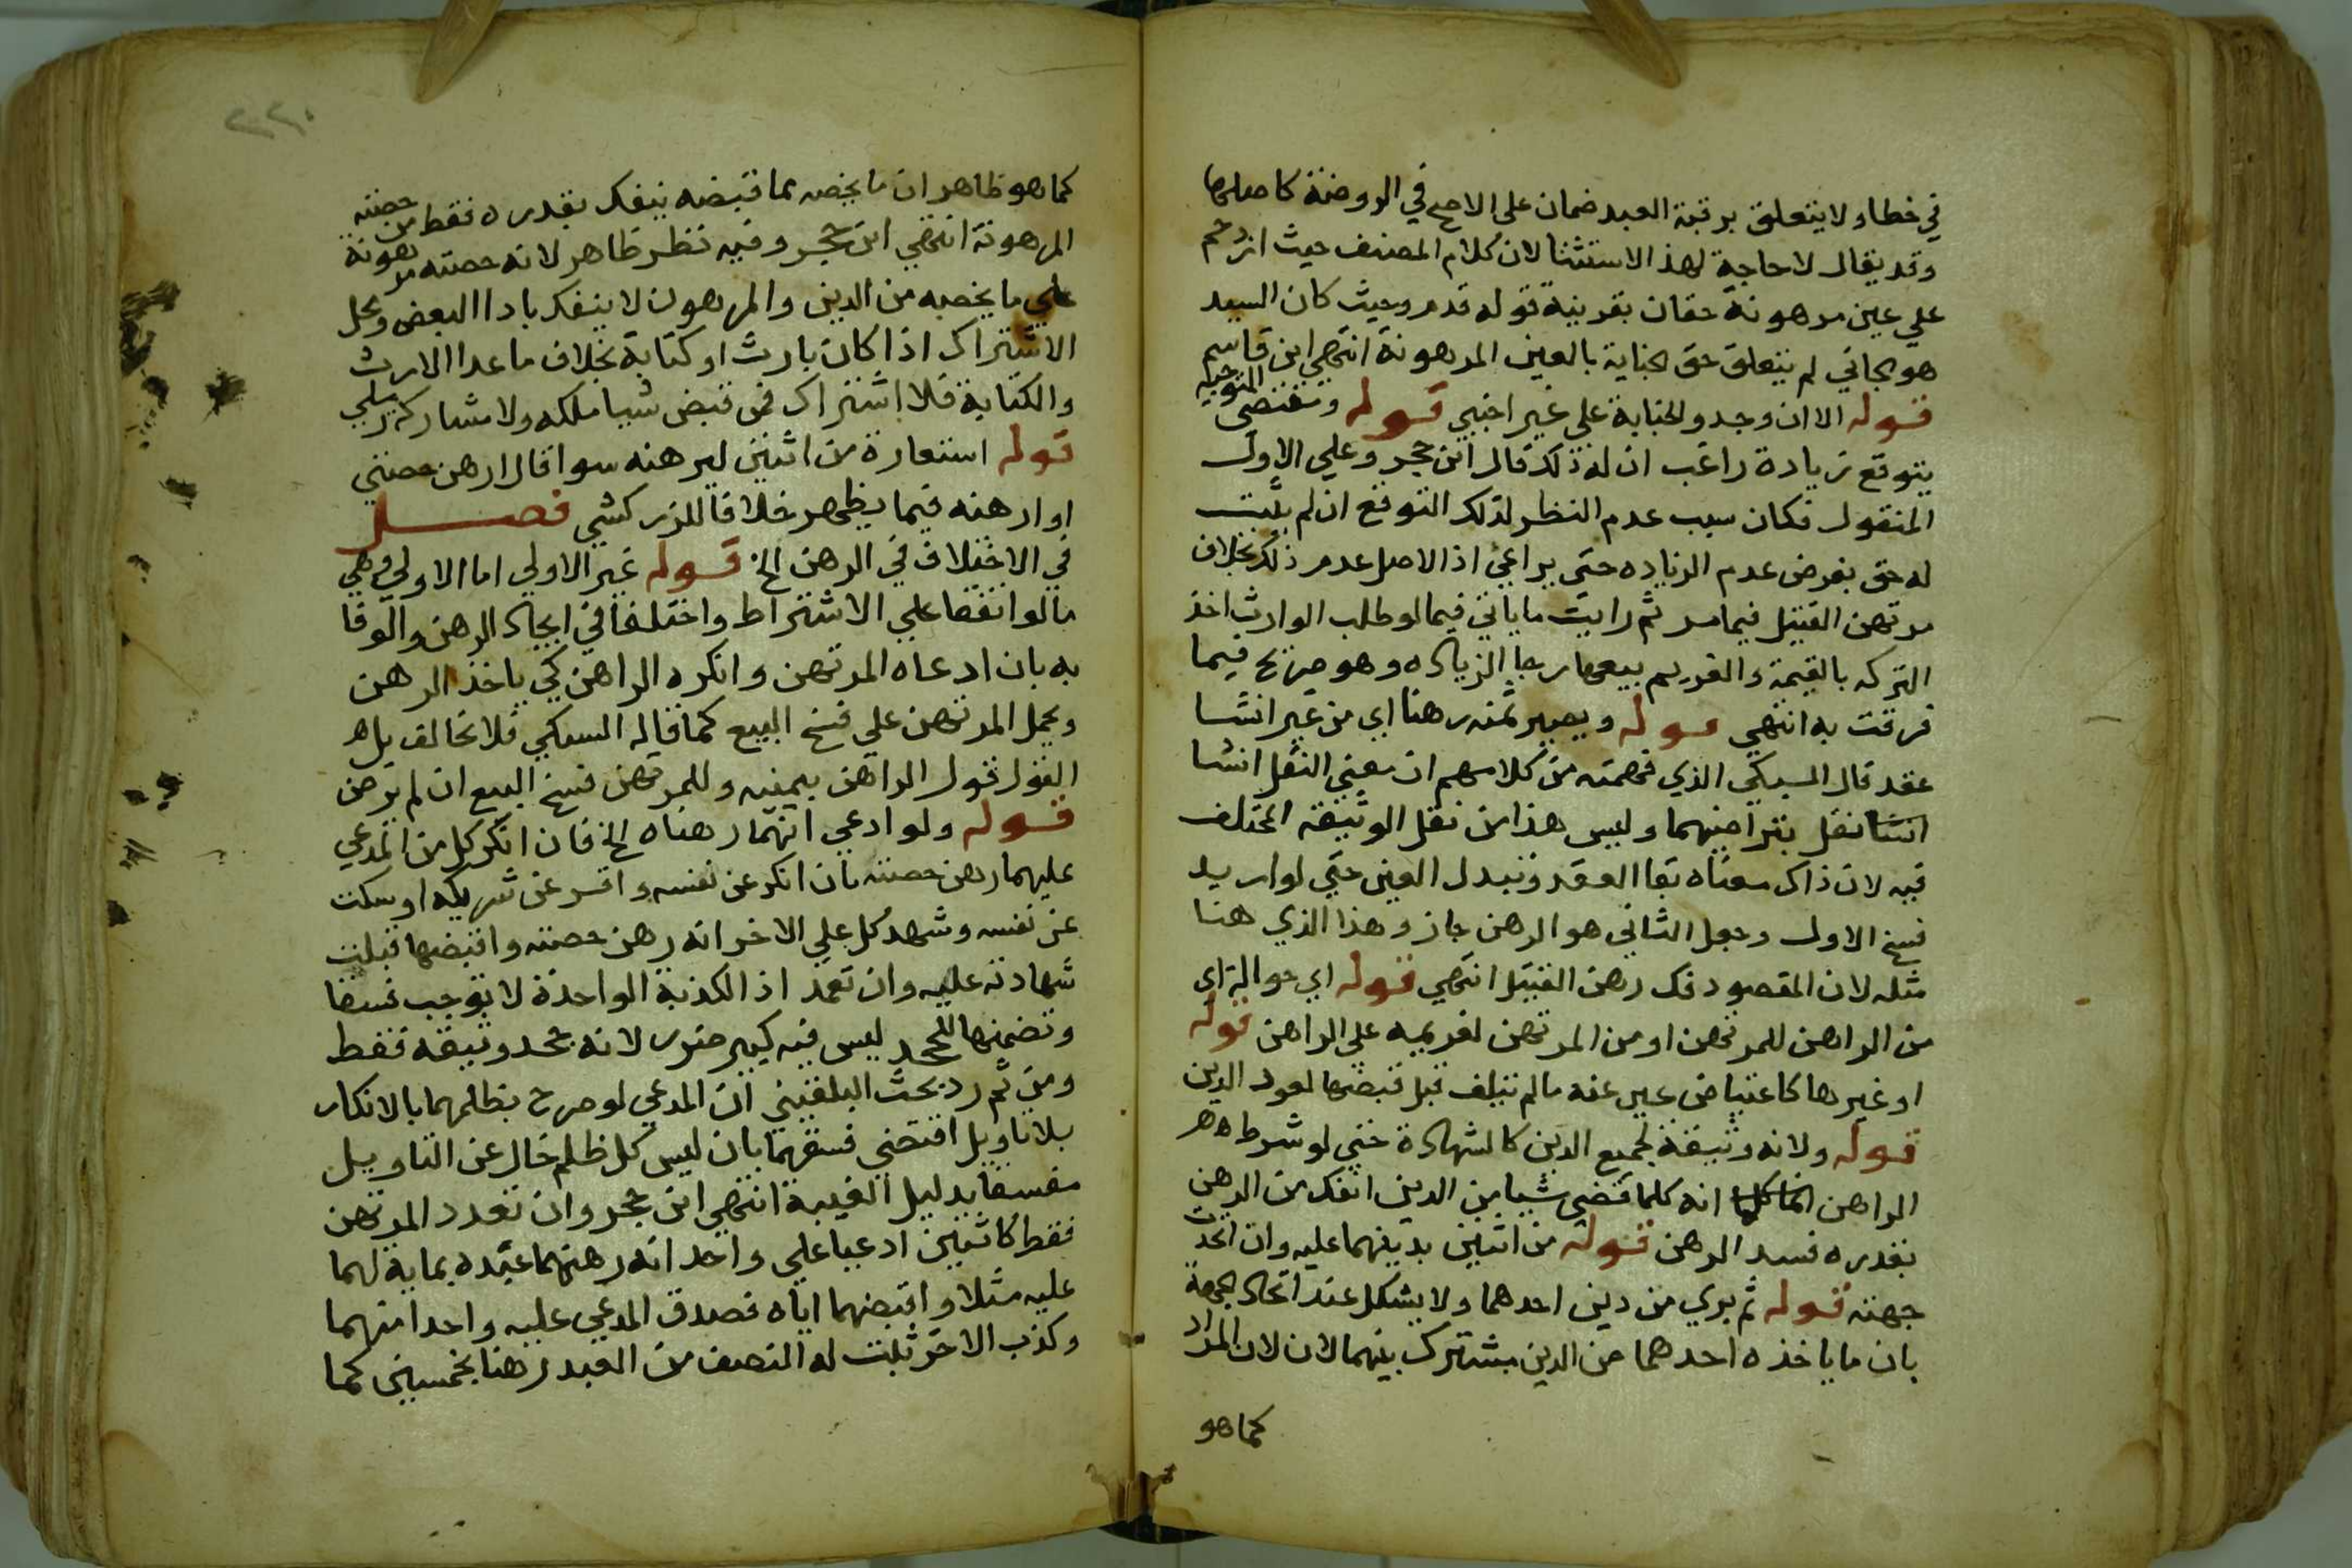 في خطا ولا يتعلق برقبة العبد ضمان على الاصح في الروضة كاصلها
وقد يقال لا حاجة لهذا الاستثنا لان كلام المصنف حيث ازدحم
علي عين مرهونة حقان بقرينة قوله قدم وحيث كان السيد
هو الجاني لم يتعلق حق الجناية بالعين المرهونة انتهى ابن قاسم
قوله الا ان وجد والجناية علي غير اجنبي قوله ومقتضى التوجيه
يتوقع زيادة راغب ان له ذلك قال ابن حجر وعلي الاول
المنقول فكان سبب عدم النظر لذلك التوقع ان لم يثبت
له حق بفرض عدم الزياده حتى يراعي اذ الاصل عدم ذلك بخلاف
مرتهن القتيل فيما مر ثم رايت ما ياتي فيما لو طلب الوارث اخذ
التركه بالقيمة والغريم بيعها رجا الزياده وهو صريح فيما
فرقت به انتهي قوله ويصير ثمنه رهنا اي من غير انشا
عقد قال السبكي الذي فهمته من كلامهم ان معني النقل انشا
انشا نقل بتراضيهما وليس هذا من نقل الوثيقة المختلف
فيه لان ذاك معناه بقا العقد وتبدل العين حتي لو اريد
فسخ الاول وجعل الثاني هو الرهن جاز وهذا الذي هنا
مثله لان المقصود فك رهن القتيل انتهي قوله اي حوالة اي
من الراهن للمرتهن او من المرتهن لغريمه على الراهن قوله
او غيرها كاعتياض عين عنه ما لم تتلف قبل قبضها لعود الدين
قوله ولانه وثيقة لجميع الدين كالشهادة حتي لو شرط
الراهن انه كلما قضى شيا من الدين انفك من الرهن
بقدره فسد الرهن قوله من اثنين بدينهما عليه وان اتحدت
جهته قوله ثم بري من دين احدهما ولا يشكل عند اتحاد الجهة
بان ما ياخذه احدهما من الدين مشترك بينهما لان لان المراد
كما هو
كما هو ظاهر ان ما يخصه مما قبضه ينفك بقدره فقط من حصته
المرهونة انتهي ابن حجر وفيه نظر ظاهر لانه حصته مرهونة
علي ما يخصه من الدين والمرهون لا ينفك بادا البعض ومحل
الاشتراك اذا كان بارث او كتابة بخلاف ما عدا الارث
والكتابة فلا اشتراك فمن قبض شيا ملكه ولا مشاركة
قوله استعارة من اثنين ليرهنه سوا قال ارهن حصتي
او ارهنه فيما يظهر خلافا للزركشي فصل
في الاختلاف في الرهن الخ قوله غير الاولي اما الاولي وهي
ما لو اتفقا علي الاشتراط واختلفا في ايجاد الرهن والوفا
به بان ادعاه المرتهن وانكره الراهن كي ياخذ الرهن
ويحمل المرتهن علي فسخ البيع كما قاله السبكي فلا تخالف بل
القول قول الراهن بيمينه وللمرتهن فسخ البيع ان لم يرهن
قوله ولو ادعي انهما رهناه الخ فان انكر كل من المدعي
عليهما رهن حصته بان انكر عن نفسه واقر عن شريكه او سكت
عن نفسه وشهد كل علي الاخر انه رهن حصته واقبضها قبلت
شهادته عليه وان تعمد اذ الكذبة الواحدة لا توجب فسقا
وتضمنها للجحد ليس فيه كبير ضرر لانه جحد وثيقة فقط
ومن ثم رد بحث البلقيني ان المدعي لو صرح بظلمهما بالانكار
بلا تاويل اقتضي فسقهما بان ليس كل ظلم خال عن التاويل
مفسقا بدليل الغيبة انتهي ابن حجر وان تعدد المرتهن
فقط كاثنين ادعيا علي واحد انه رهنهما عبده بماية لهما
عليه مثلا واقبضهما اياه فصدق المدعي عليه واحدا منهما
وكذب الاخر ثبت له النصف من العبد رهنا بخمسين كما